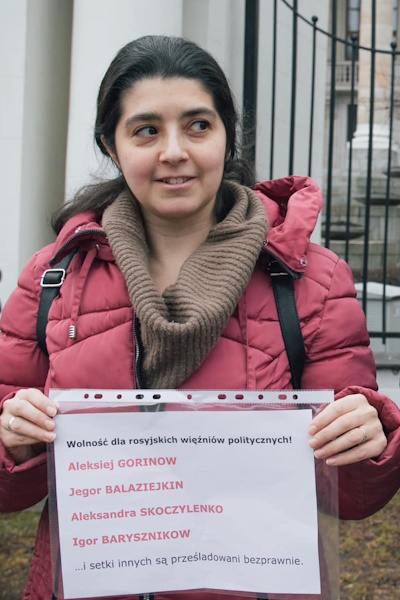 Wolność dla rosyjskich więźniów politycznych!
Aleksiej GORINOW
Jegor BALAZIEJKIN
Aleksandra SKOCZYLENKO
Igor BARYSZNIKOW
...i setki innych są prześladowani bezprawnie.